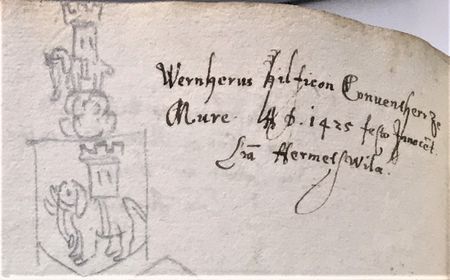 Wernherus Hilficon Conventherr ze
Mure. A D. 1425 festo Innocēt.
Lrā Hermetswila.